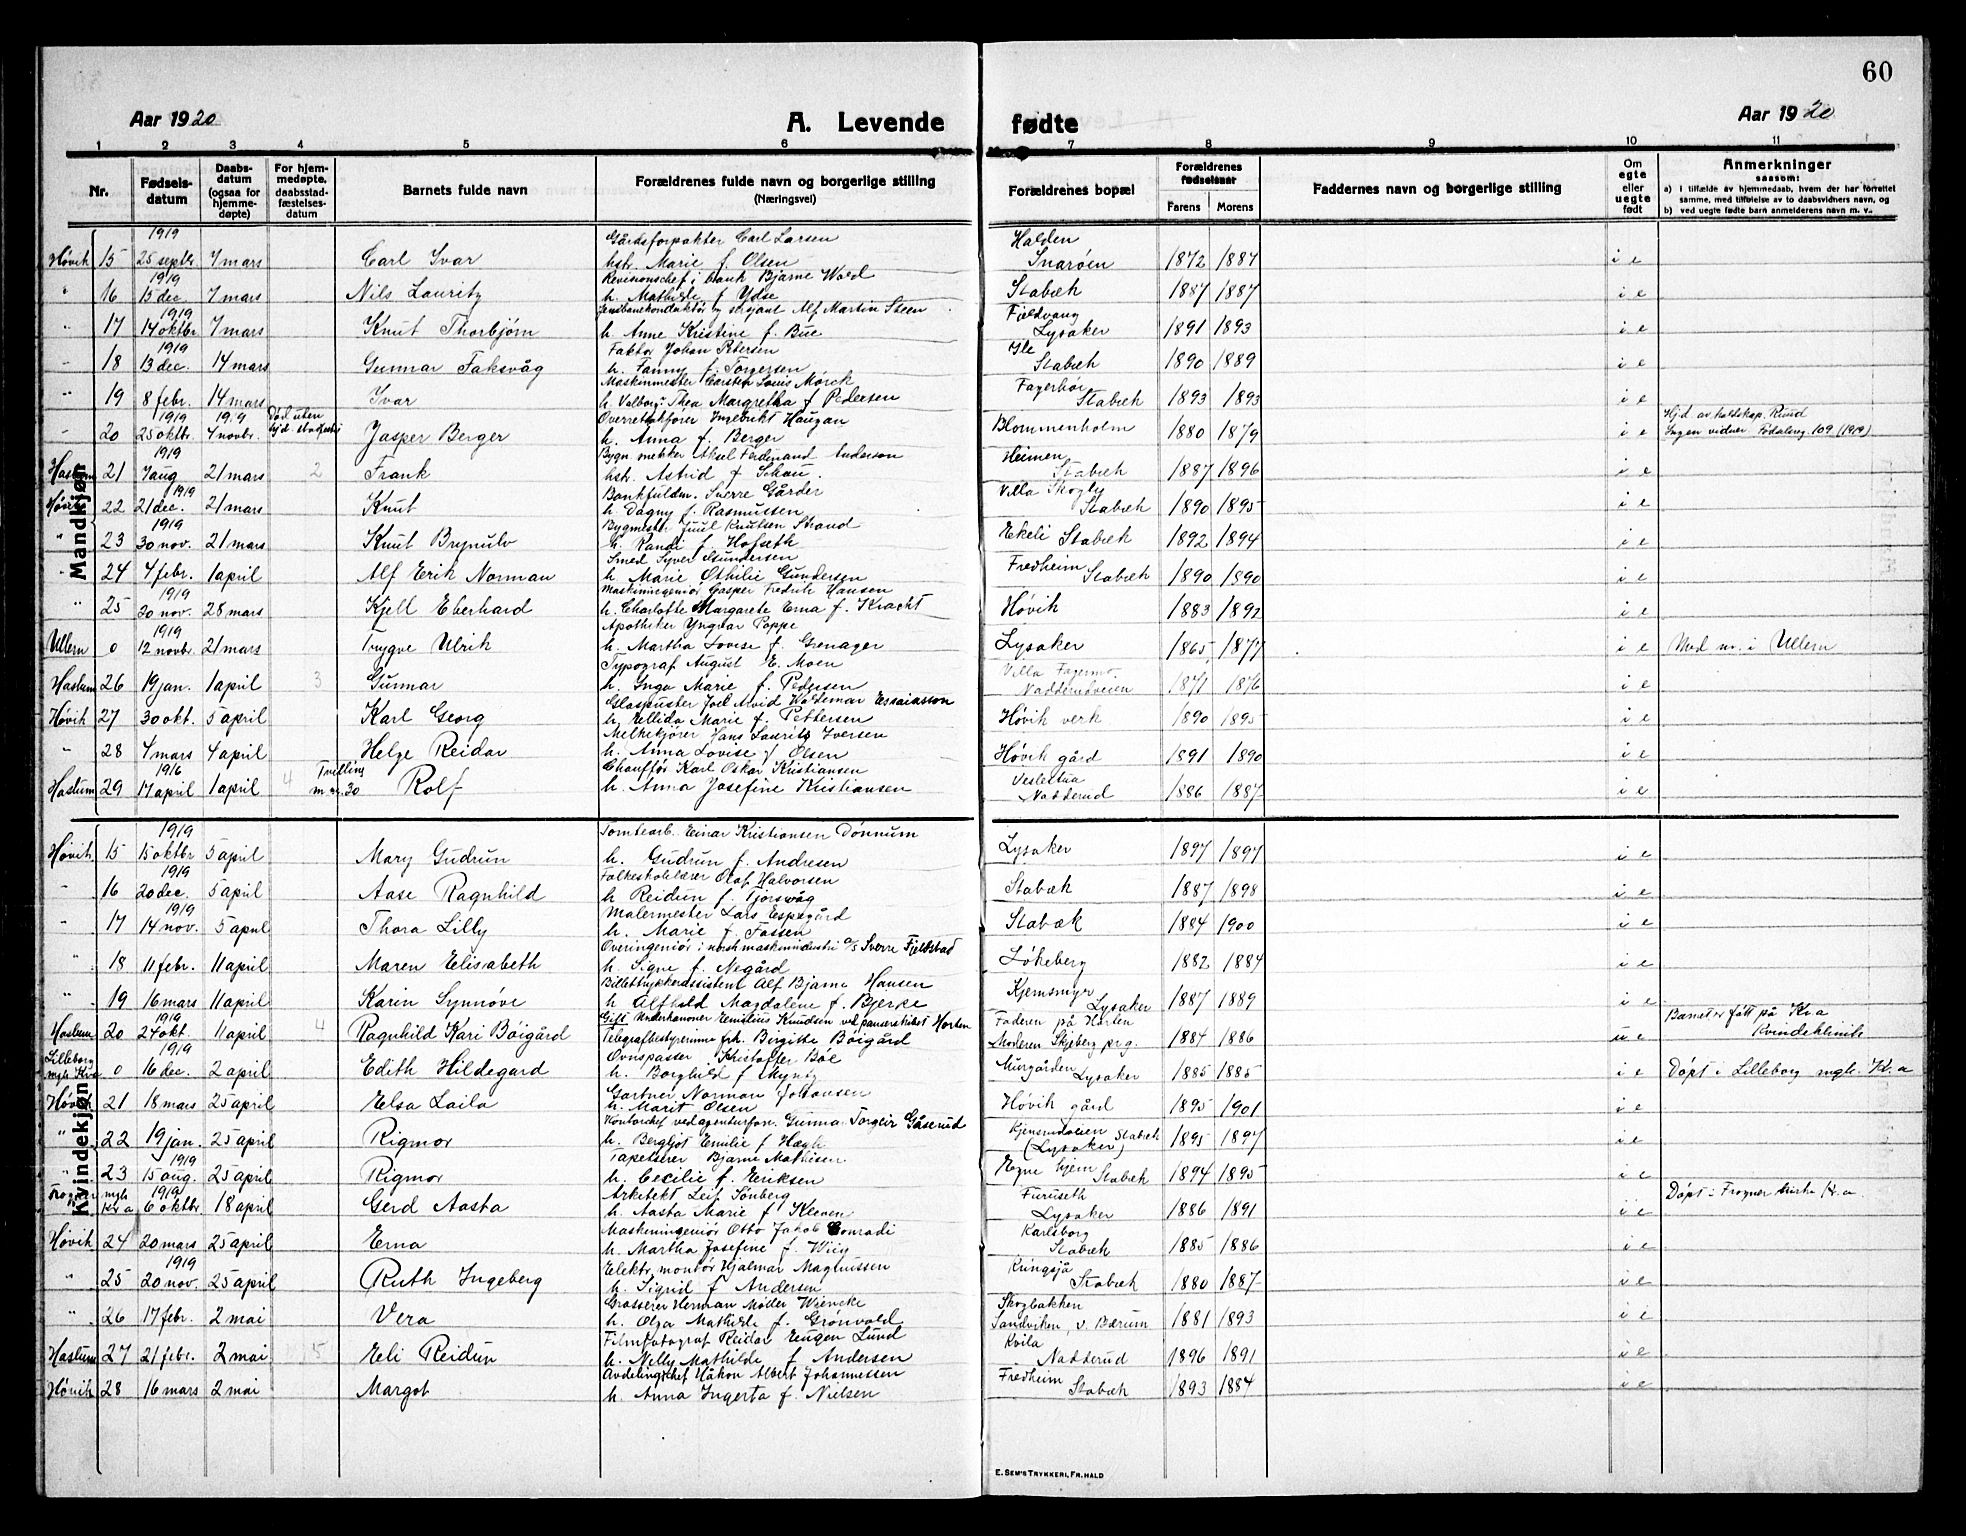 60
Aar 1920
A. Levende fødte
Aar 1920
1 2 3 4 5 6 7 8 9 10 11
Nr.
Fødsels-
datum
Daabs-
datum
(ogsaa for
hjemme-
døpte)
For hjem-
medøpte,
daabsstad-
fæstelses-
datum
Barnets fulde navn
Forældrenes fulde navn og borgerlige stilling
(Næringsvei)
Forældrenes bopæl
Forældrenes
fødselsaar
Farens Morens
Faddernes navn og borgerlige stilling
Om
egte
eller
uegte
født
Anmerkninger
saasom:
a) I tilfælde av hjemmedaab, hvem der har forrettet
samme, med tilføielse av to daabsvidners navn, og
b) ved uegte fødte barn anmelderens navn m. v.
Mandkjøn
1919 Gårdsforpakter Carl Larsen Halden
Høvik 15 25 septr 7 mars Carl Ivar hstr. Marie f. Olsen Snarøen 1872 1887 i e
1919 Revisionschef i bank Bjarne Wold
" 16 15 dec. 7 mars Nils Lauritz h. Mathilde f. Ydse Stabæk 1887 1887 i e
1919 Jernbanekonduktør og sersjant Alf Martin Steen Fjeldvang
" 17 14 oktbr 7 mars Knut Thorbjørn h. Anne Kristine f. Bue Lysaker 1891 1893 i e
1919 Faktor Johan Petersen
" 18 13 dec. 14 mars Gunnar Taksvåg h. Fanny f. Torgersen Stabæk 1890 1889 i e
Maskinmester Carsten Louis Mørck
" 19 8 febr. 14 mars Ivar h. Valborg Thea Margretha f. Pedersen Stabæk 1893 1893 i e
1919 19.9 Død uten Overretssakfører Ingebrikt Haugan
" 20 25 oktbr. 4 novbr. Jasper Berger h. Anna f. Berger Blommenholm 1880 1879 i e Ingen vidner Fødselsreg. 109 (1919)
1919 Bygn. snekker Aksel Ferdinand Anderson Heimen
Haslum 21 7 aug 21 mars 2 Frank hstr. Astrid f. Schou Stabæk 1887 1896 i e
1919 Bankfuldm. Sverre Gårder Villa Skogly
Høvik 22 21 dec. 21 mars Knut h. Dagny f. Rasmussen Stabæk 1890 1895 i e
1919 Bygmester Juul Knutsen Strand
" 23 30 nov. 21 mars Knut Brynulv h. Randi f. Hofseth Ekeli Stabæk 1892 1894 i e
Smed Syver Gundersen Fredheim
" 24 4 febr. 1 april Alf Erik Norman h. Marie Othilie Gundersen Stabæk 1890 1890 i e
1919 Maskiningeniør Casper Fredrik Hansen
" 25 20 nov. 28 mars Kjell Eberhard h. Charlotte Margarete Erna f. Kracht Høvik 1883 1892 i e
1919 Apotheker Yngvar Poppe
Ullern 0 12 novbr. 21 mars Trygve Ulrik h. Martha Lovise f. Grenager Lysaker 1865 1877 i e Med nr. i Ullern
Typograf August E. Moen Villa Fagermo
Haslum 26 19 jan. 1 april 3 Gunnar h. Inga Marie f. Pedersen Nadderudveien 1871 1876 i e
Glaspuster Joel Arvid Waldemar Essaiasson
Høvik 27 30 okt. 5 april Karl Georg h. Ellida Marie f. Pettersen Høvik verk 1890 1895 i e
Melkekjører Hans Lauritz Iversen
" 28 4 mars 4 april Helge Reidar h. Anna Lovise f. Olsen Høvik gård 1891 1890 i e
1916 Tvilling Chauffør Karl Oskar Kristiansen Veslestua
Haslum 29 17 april 1 april 4 m nr. 30 Rolf h. Anna Josefine Kristiansen Nadderud 1886 1887 i e
Kvindekjøn
1919 Tomtearb. Einar Kristiansen Dønnum
Høvik 15 15 oktbr 5 april Mary Gudrun h. Gudrun f. Andresen Lysaker 1897 1897 i e
1919 Folkeskolelærer Olaf Halvorsen
" 16 20 dec. 5 april Aase Ragnhild h. Reidun f. Tjorsvåg Stabæk 1887 1898 i e
1919 Malermester Lars Espegård
" 17 14 nov. 5 april Thora Lilly h. Marie f. Fossen Stabæk 1884 1900 i e
Overingeniør i norsk maskinindustri a/s Sverre Fjeldstad
" 18 11 febr. 11 april Maren Elisabeth h. Signe f. Negård Løkeberg 1882 1884 i e
Billettrykkerassistent Alf Bjarne Hansen Kjemsmyr
" 19 16 mars 11 april Karin Synnøve h. Alfhild Magdalene f. Bjerke Lysaker 1887 1889 i e
1919 Gift Underkanoner Emilius Knudsen ved panserskibet Horten Faderen på Horten Barnet er født på Kr.a
Haslum 20 24 okt. 11 april 4 Ragnhild Kari Bøigård Telegrafbestyrerinne frk. Birgitte Bøigård Moderen Skjeberg pr.g. 1884 1886 u e Kvindeklinik
Lilleborg 1919 Ovnspasser Kristoffer Bøe Murgården
mgh. Kr.a 0 16 dec. 2 april Edith Hildegard h. Borghild f. Myntz Lysaker 1885 1885 i e Døpt i Lilleborg mgh. Kr.a
Gartner Norman Johansen
Høvik 21 18 mars 25 april Elsa Laila h. Marit Olsen Høvik gård 1895 1901 i e
Kontorchef ved agenturforr. Gunnar Torgeir Gåserud Kjensrudveien Stabæk
" 22 19 jan. 25 april Rigmor h. Bergljot Emilie f. Hægh (Lysaker) 1895 1897 i e
1919 Tapetserer Bjarne Mathisen Egne hjem
" 23 15 aug. 25 april Rigmor h. Cecilie f. Eriksen Stabæk 1894 1895 i e
Frogner mgh 1919 Arkitekt Leif Sönberg Furuseth Døpt i Frogner kirke Kr.a
Kr a 6 oktbr 18 april Gerd Aasta h. Aasta Marie f. Kleven Lysaker 1886 1891 i e
Maskiningeniør Otto Jakob Conradi Karlsborg
Høvik 24 20 mars 25 april Erna h. Martha Josefine f. Wiig Stabæk 1885 1886 i e
1919 Elektr. montør Hjalmar Magnussen Kringsjå
" 25 20 nov. 25 april Ruth Ingeberg h. Sigrid f. Andersen Stabæk 1880 1887 i e
Grosserer Herman Møller Wiencke Skogbakken
" 26 17 febr. 2 mai Vera h. Olga Mathilde f. Grönvold Sandviken, V. Bærum 1881 1893 i e
Filmfotograf Reidar Eugen Lund Kvila
Haslum 27 21 febr. 2 mai 5 Eli Reidun h. Nelly Mathilde f. Andersen Nadderud 1896 1891 i e
Avdelingschef Håkon Albert Johannessen Fredheim
Høvik 28 16 mars 2 mai Margot h. Anna Ingerta f. Nielsen Stabæk 1893 1884 i e
E. SEM'S TRYKKERI, FR.HALD